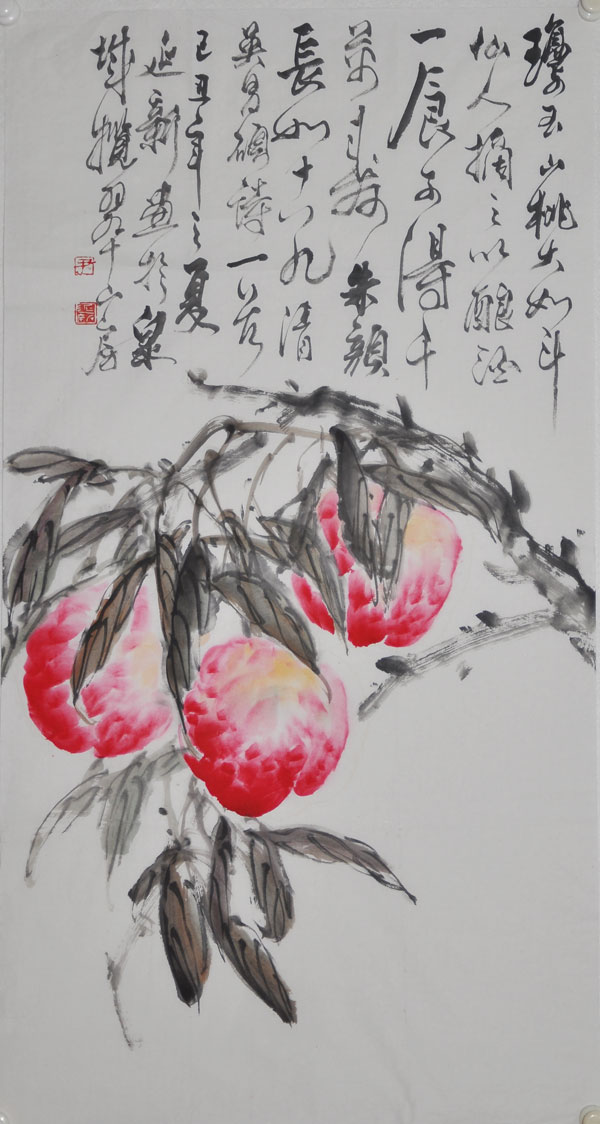 瓊玉山桃大如斗
仙人摘之以釀酒
一食可得千
萬壽朱顏
長如十八九清
吳昌碩詩一首
己丑年之夏
延新畫於泉
城攬翠山居